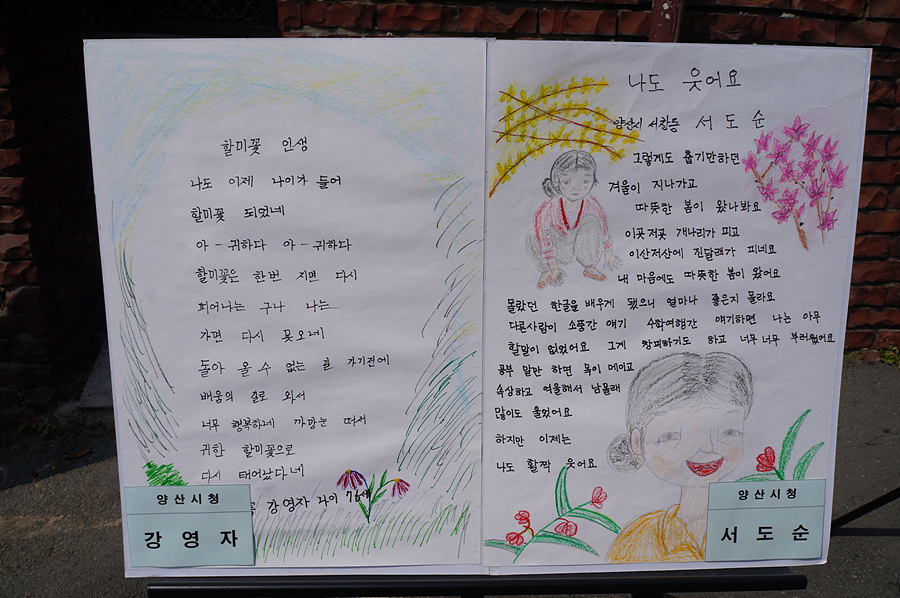 할미꽃 인생
나도 이제 나이가 들어
할미꽃 되었네
아-귀하다 아-귀하다
할미꽃은 한번 지면 다시
피어나는 구나 나는
가면 다시 못오네
돌아 올 수 없는 길 가기전에
배움의 길로 와서
너무 행복하게 까망눈 떠서
귀한 할미꽃으로
다시 태어났다네
강영자 나이 76세
양산시청
강영자
나도 웃어요
양산시 서창동 서도순
그렇게도 춥기만하던
겨울이 지나가고
따뜻한 봄이 왔나봐요
이곳저곳 개나리가 피고
이산저산에 진달래가 피네요
내 마음에도 따뜻한 봄이 왔어요
몰랐던 한글을 배우게 됐으니 얼마나 좋은지 몰라요
다른사람이 소풍간 얘기 수학여행간 얘기하면 나는 아무
할말이 없었어요 그게 창피하기도 하고 너무 너무 부러웠어요
공부 말만 하면 목이 메이고
속상하고 억울해서 남몰래
많이도 울었어요
하지만 이제는
나도 활짝 웃어요
양산시청
서도순